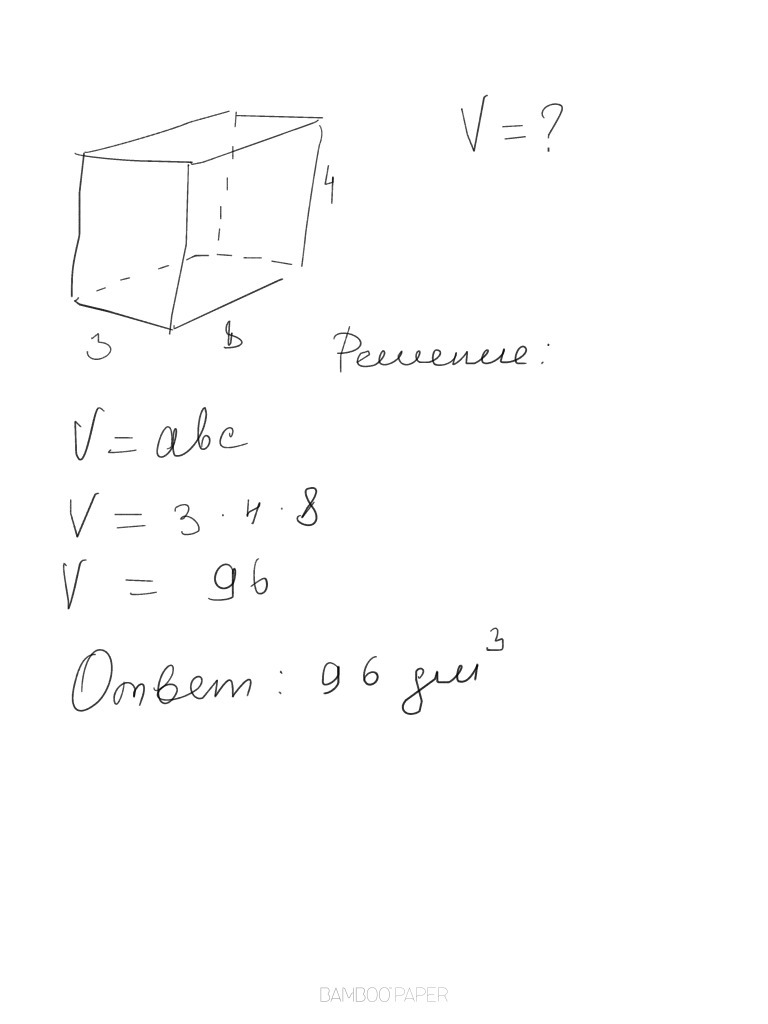 V = ?
4
3
8
Решение:
V = abc
V = 3 · 4 · 8
V = 96
Ответ: 96 дм³
BAMBOO PAPER